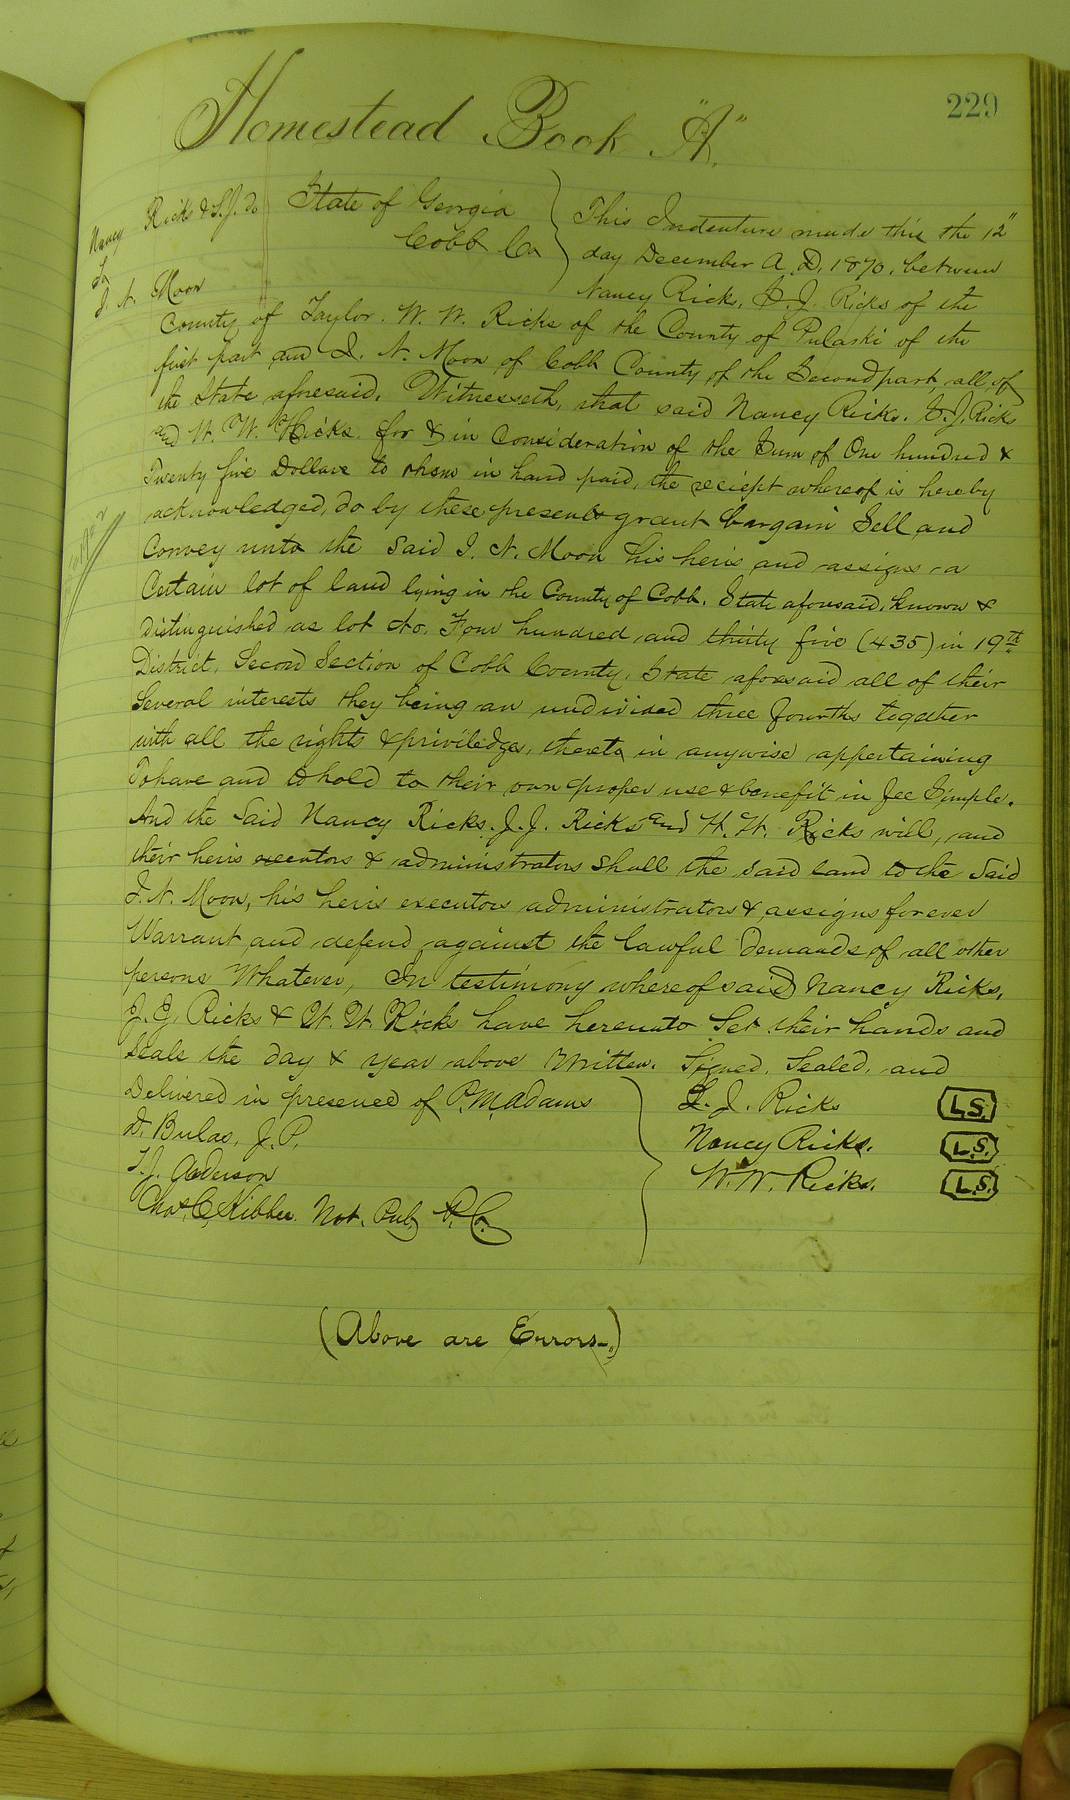 229
Homestead Book "A"
Nancy Ricks & S.J. do
To
I. N. Moon
State of Georgia
Cobb Co
This Indenture made this the 12"
day December A.D. 1870, between
Nancy Ricks, S.J. Ricks of the
County of Taylor. W. W. Ricks of the County of Pulaski of the
first part and I. N. Moon of Cobb County of the Second part all of
the State aforesaid. Witnesseth, that said Nancy Ricks. S.J. Ricks
and W. W. Ricks for & in Consideration of the Sum of One hundred &
Twenty five Dollars to them in hand paid, the reciept whereof is hereby
acknowledged, do by these presents grant bargain Sell and
Convey unto the Said I. N. Moon his heirs and assigns a
Certain lot of land lying in the County of Cobb. State aforesaid, known &
distinguished as lot No. Four hundred and thirty five (435) in 19th
District, Second Section of Cobb County, State aforesaid all of their
Several interests they being an undivided three fourths together
with all the rights & priviledges, thereto in anywise appertaining
To have and to hold to their own proper use & benefit in fee Simple.
And the Said Nancy Ricks. J.J. Ricks and H. H. Ricks will, and
their heirs executors & administrators Shall the said land to the Said
I. N. Moon, his heirs executors administrators & assigns forever
Warrant and defend against the lawful Demands of all other
persons Whatever, In testimony whereof said Nancy Ricks,
Ricks & W. W. Ricks have hereunto Set their hands and
Seals the day & year above Written. Signed, Sealed, and
Delivered in presence of P. M. Adams
D. Bulas, J. P.
T. J. Anderson
Chas. C. Kibbee. Not. Pub
S. J. Ricks L.S.
Nancy Ricks. L.S.
W. W. Ricks. L.S.
(Above are Errors.)